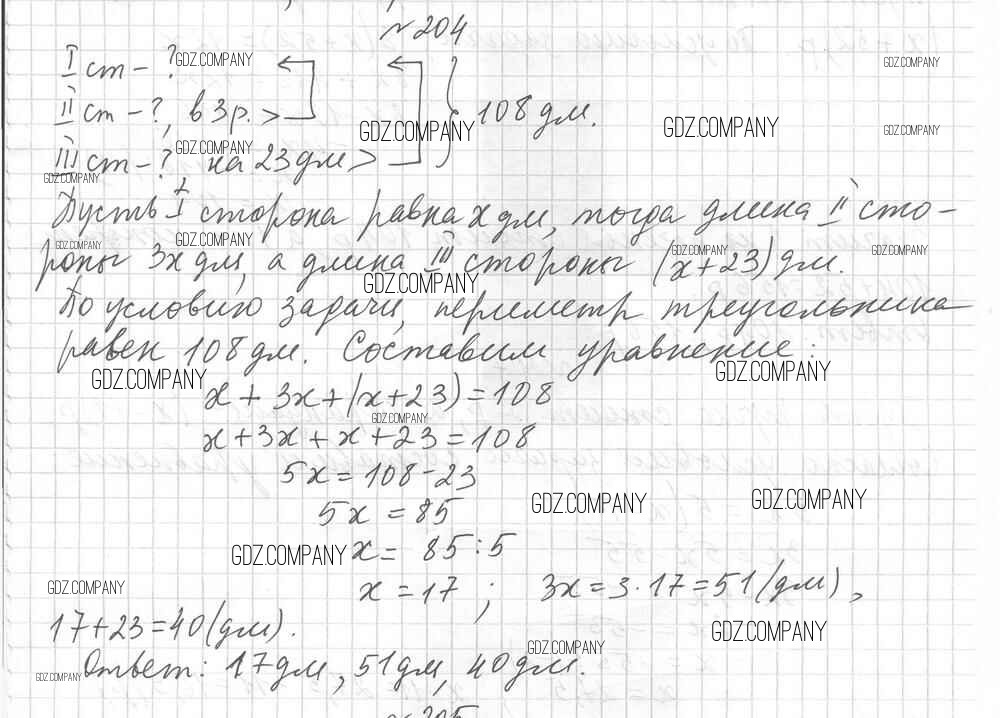 №204
I ст - ? GDZ.COMPANY GDZ.COMPANY
II ст - ?, в 3 р. > 108 дм. GDZ.COMPANY GDZ.COMPANY GDZ.COMPANY
III ст - ?, на 23 дм > GDZ.COMPANY
GDZ.COMPANY
Пусть I сторона равна x дм, тогда длина II сто-
GDZ.COMPANY GDZ.COMPANY GDZ.COMPANY GDZ.COMPANY
роны 3x дм, а длина III стороны (x+23) дм.
GDZ.COMPANY
По условию задачи, периметр треугольника
равен 108 дм. Составим уравнение:
GDZ.COMPANY GDZ.COMPANY
x + 3x + (x+23) = 108
GDZ.COMPANY
x + 3x + x + 23 = 108
5x = 108 - 23
5x = 85 GDZ.COMPANY GDZ.COMPANY
GDZ.COMPANY x = 85 : 5
GDZ.COMPANY
x = 17 ; 3x = 3 · 17 = 51 (дм),
17 + 23 = 40 (дм). GDZ.COMPANY
GDZ.COMPANY
Ответ: 17 дм, 51 дм, 40 дм.
GDZ.COMPANY
№205